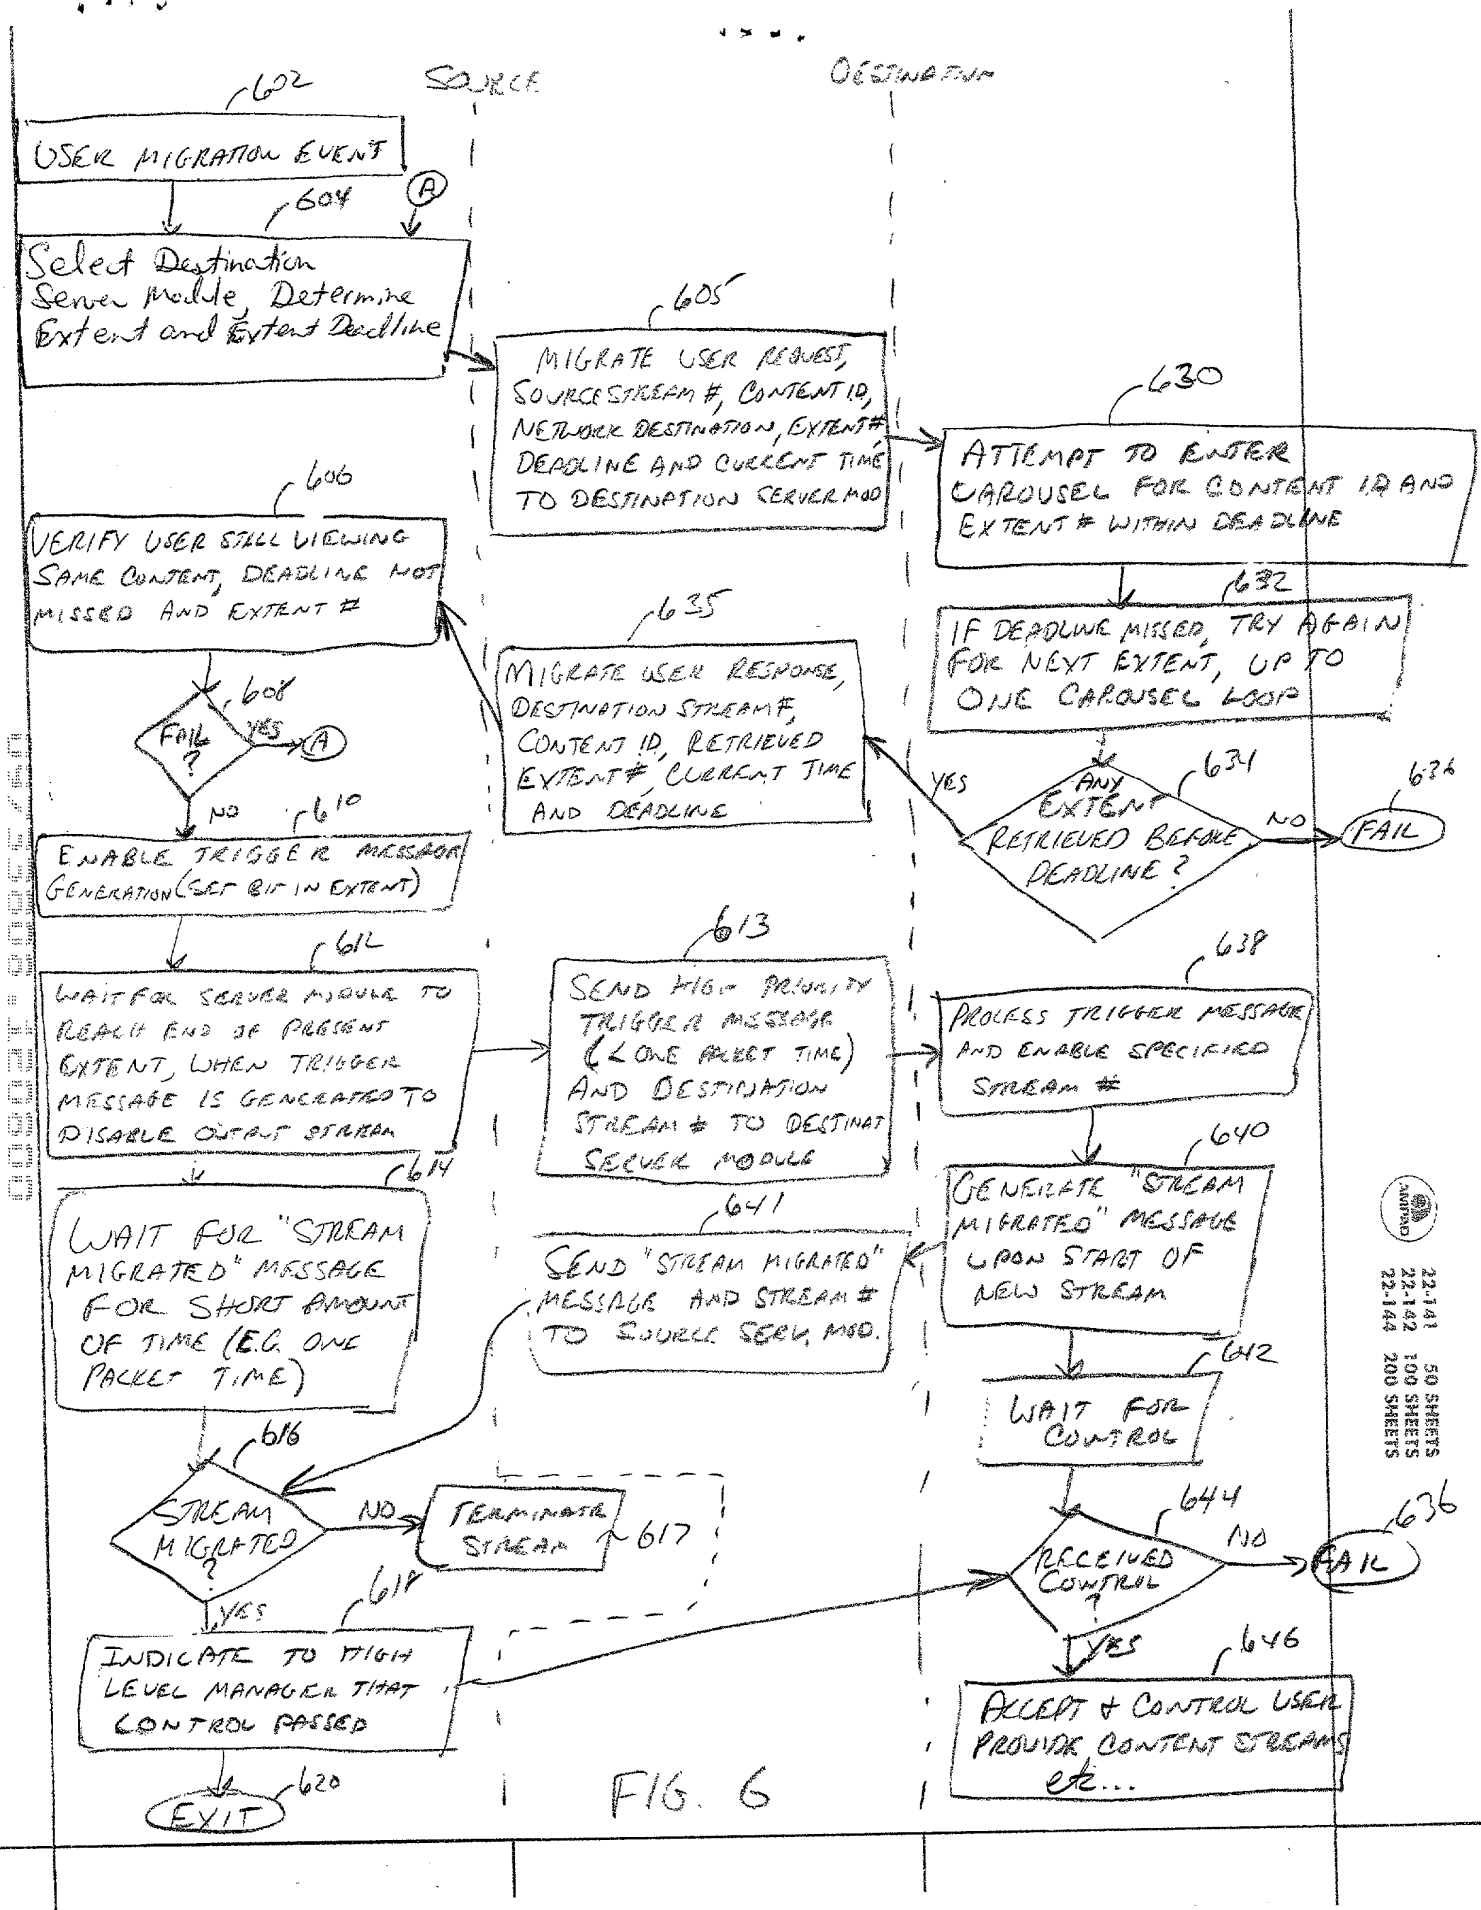 SOURCE
DESTINATION
602
USER MIGRATION EVENT
604
A
Select Destination
Server Module, Determine
Extent and Extent Deadline
605
MIGRATE USER REQUEST,
SOURCE STREAM #, CONTENT ID,
NETWORK DESTINATION, EXTENT #
DEADLINE AND CURRENT TIME
TO DESTINATION SERVER MOD
630
ATTEMPT TO ENTER
CAROUSEL FOR CONTENT ID AND
EXTENT # WITHIN DEADLINE
606
VERIFY USER STILL VIEWING
SAME CONTENT, DEADLINE NOT
MISSED AND EXTENT #
632
IF DEADLINE MISSED, TRY AGAIN
FOR NEXT EXTENT, UP TO
ONE CAROUSEL LOOP
635
MIGRATE USER RESPONSE,
DESTINATION STREAM #,
CONTENT ID, RETRIEVED
EXTENT #, CURRENT TIME
AND DEADLINE
608
FAIL
?
YES
A
NO
634
ANY
EXTENT
RETRIEVED BEFORE
DEADLINE ?
YES
NO
636
FAIL
610
ENABLE TRIGGER MESSAGE
GENERATION (SET BIT IN EXTENT)
612
WAIT FOR SERVER MODULE TO
REACH END OF PRESENT
EXTENT, WHEN TRIGGER
MESSAGE IS GENERATED TO
DISABLE OUTPUT STREAM
613
SEND HIGH PRIORITY
TRIGGER MESSAGE
(< ONE PACKET TIME)
AND DESTINATION
STREAM # TO DESTINAT
SERVER MODULE
638
PROCESS TRIGGER MESSAGE
AND ENABLE SPECIFIED
STREAM #
614
WAIT FOR "STREAM
MIGRATED" MESSAGE
FOR SHORT AMOUNT
OF TIME (E.G. ONE
PACKET TIME)
641
SEND "STREAM MIGRATED"
MESSAGE AND STREAM #
TO SOURCE SERV. MOD.
640
GENERATE "STREAM
MIGRATED" MESSAGE
UPON START OF
NEW STREAM
642
WAIT FOR
CONTROL
616
STREAM
MIGRATED
?
NO
TERMINATE
STREAM
617
YES
644
RECEIVED
CONTROL
?
NO
636
FAIL
YES
618
INDICATE TO HIGH
LEVEL MANAGER THAT
CONTROL PASSED
646
ACCEPT & CONTROL USER
PROVIDE CONTENT STREAMS
etc...
620
EXIT
FIG. 6
AMPAD
22-141 50 SHEETS
22-142 100 SHEETS
22-144 200 SHEETS